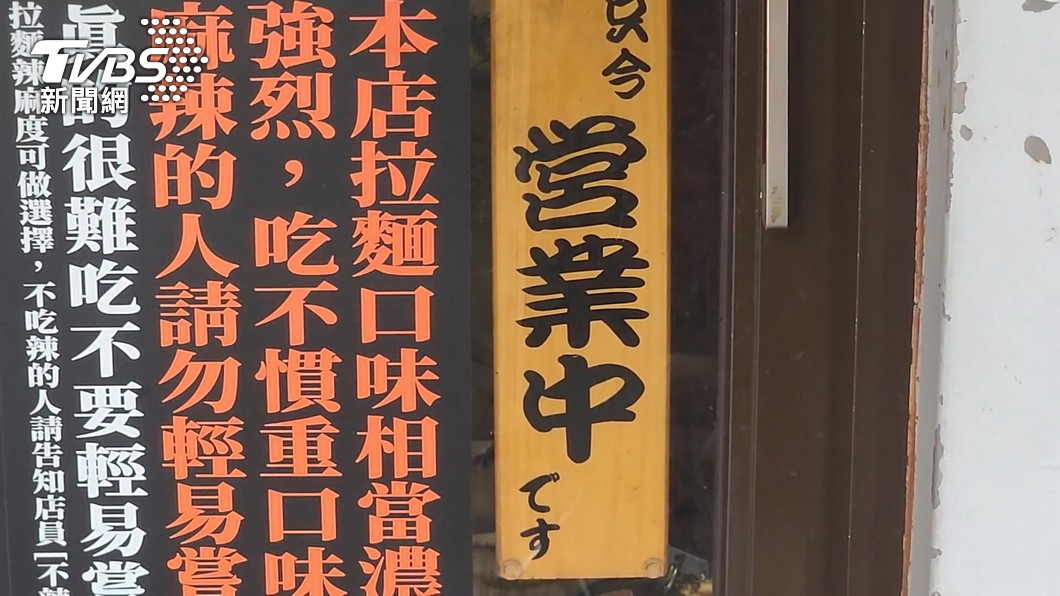 本店拉麵口味相當濃
強烈，吃不慣重口味
麻辣的人請勿輕易嘗
真的很難吃不要輕易嘗
拉麵辣麻度可做選擇，不吃辣的人請告知店員[不辣
只今
営業中
です
TVBS
新聞網